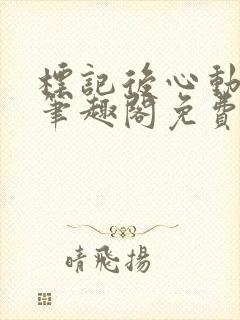 標記後心動
筆趣閣免費
晴飛揚